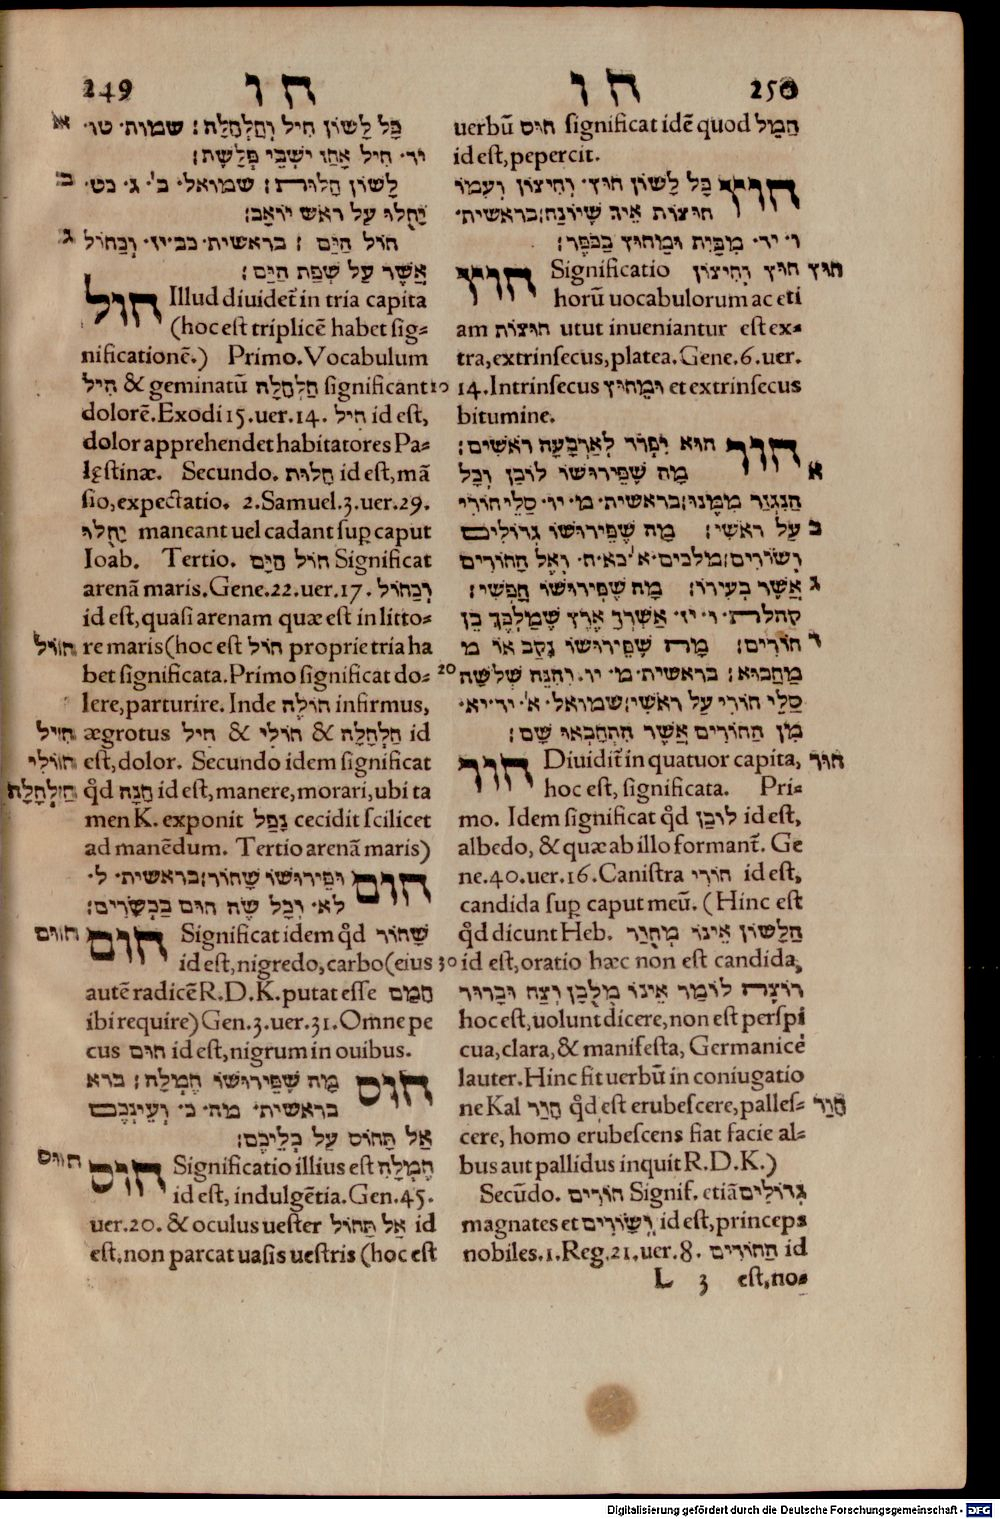 249 חו
א כָּל לְשׁוֹן חִיל וְחַלְחָלָה׃ שמות· טו·
יד· חִיל אָחַז יֹשְׁבֵי פְּלָשֶׁת׃
ב לְשׁוֹן חֲלוּת׃ שמואל· ב׳· ג· כט·
יָחֻלוּ עַל רֹאשׁ יוֹאָב׃
ג חוֹל הַיָּם׃ בראשית· כב· יז· וְכַחוֹל
אֲשֶׁר עַל שְׂפַת הַיָּם׃
חול Illud diuidet̃ in tria capita
(hoc est triplicē habet sig=
nificationē.) Primo. Vocabulum
חִיל & geminatū חַלְחָלָה significant 10
dolorē. Exodi 15. uer. 14. חִיל id est,
dolor apprehendet habitatores Pa=
lęstinæ. Secundo. חֲלוּת id est, mã
sio, expectatio. 2. Samuel. 3. uer. 29.
יָחֻלוּ maneant uel cadant suꝑ caput
Ioab. Tertio. חוֹל הַיָּם Significat
arenā maris. Gene. 22. uer. 17. וְכַחוֹל
id est, quasi arenam quæ est in litto=
חוּל re maris (hoc est חוֹל proprie tria ha
bet significata. Primo significat do= 20
lere, parturire. Inde חוֹלֶה infirmus,
חִיל ægrotus חִיל & חוֹלִי & חַלְחָלָה id
חוֹלִי est, dolor. Secundo idem significat
חַלְחָלָה qd̄ חָנָה id est, manere, morari, ubi ta
men K. exponit נָפַל cecidit scilicet
ad manēdum. Tertio arenā maris)
חום וּפֵירוּשׁוֹ שָׁחוֹר׃ בראשית· ל·
לא· וְכָל שֶׂה חוּם בַּכְּשָׂבִים׃
חוּם חום Significat idem qd̄ שָׁחוֹר
id est, nigredo, carbo (eius 30
autē radicē R. D. K. putat esse חָמַם
ibi require) Gen. 3. uer. 31. Omne pe
cus חוּם id est, nigrum in ouibus.
חוס מַה שֶּׁפֵּירוּשׁוֹ חֶמְלָה׃ ברא
בראשית· מה· כ· וְעֵינְכֶם
אַל תָּחוֹס עַל כְּלֵיכֶם׃
חוּס חוס Significatio illius est חֶמְלָה
id est, indulgētia. Gen. 45.
uer. 20. & oculus uester אַל תָּחוֹל id
est, non parcat uasis uestris (hoc est
חו 250
uerbū חוּס significat idē quod חָמַל
id est, pepercit.
חוץ כָּל לְשׁוֹן חוּץ· וְחִיצוֹן וְעִמּוֹ
חוּצוֹת אֵיךְ שֶׁיּוֹנַח׃ בראשית·
ו· יד· מִבַּיִת וּמִחוּץ בַּכֹּפֶר׃
חוץ Significatio חוּץ וְחִיצוֹן חוּץ
horū uocabulorum ac eti
am חוּצוֹת utut inueniantur est ex=
tra, extrinsecus, platea. Gene. 6. uer.
14. Intrinsecus וּמִחוּץ et extrinsecus
bitumine.
חור הוּא יִפָּרֵד לְאַרְבָּעָה רֹאשִׁים׃
א מַה שֶּׁפֵּירוּשׁוֹ לוֹבֶן וְכָל
הַנִּגְזָר מִמֶּנּוּ׃ בראשית· מ· יו· סַלֵּי חוֹרִי
ב עַל רֹאשִׁי׃ מַה שֶּׁפֵּירוּשׁוֹ גְּדוֹלִים
וְשָׂרִים׃ מלכים· א׳· כא· ח· וְאֶל הַחוֹרִים
ג אֲשֶׁר בְּעִירוֹ׃ מַה שֶּׁפֵּירוּשׁוֹ חָפְשִׁי׃
קהלת· י· יז· אַשְׁרֵךְ אֶרֶץ שֶׁמַּלְכֵּךְ בֶּן
ד חוֹרִים׃ מַה שֶּׁפֵּירוּשׁוֹ נֶקֶב אוֹ מ
מַחֲבוֹא׃ בראשית· מ· יו· וְהִנֵּה שְׁלֹשָׁה
סַלֵּי חוֹרִי עַל רֹאשִׁי׃ שמואל· א׳· יד· יא·
מִן הַחוֹרִים אֲשֶׁר הִתְחַבְּאוּ שָׁם׃
חור Diuidit̃ in quatuor capita, חוּר
hoc est, significata. Pri=
mo. Idem significat qd̄ לוֹבֶן id est,
albedo, & quæ ab illo formant̃. Ge
ne. 40. uer. 16. Canistra חוֹרִי id est,
candida suꝑ caput meū. (Hinc est
qd̄ dicunt Heb. הַלָּשׁוֹן אֵינוֹ מְחֻוָּר
id est, oratio hæc non est candida,
רוֹצֶה לוֹמַר אֵינוֹ מְלֻבָּן וְצַח וּבָרוּר
hoc est, uolunt dicere, non est perspi
cua, clara, & manifesta, Germanicè
lauter. Hinc fit uerbū in coniugatio
ne Kal חָוַר qd̄ est erubescere, palles= חָוַר
cere, homo erubescens fiat facie al=
bus aut pallidus inquit R. D. K.)
Secūdo. חוֹרִים Signif. etiã גְּדוֹלִים
magnates et וְשָׂרִים id est, princeps
nobiles. 1. Reg. 21. uer. 8. הַחוֹרִים id
L 3 est, no=
Digitalisierung gefördert durch die Deutsche Forschungsgemeinschaft - DFG